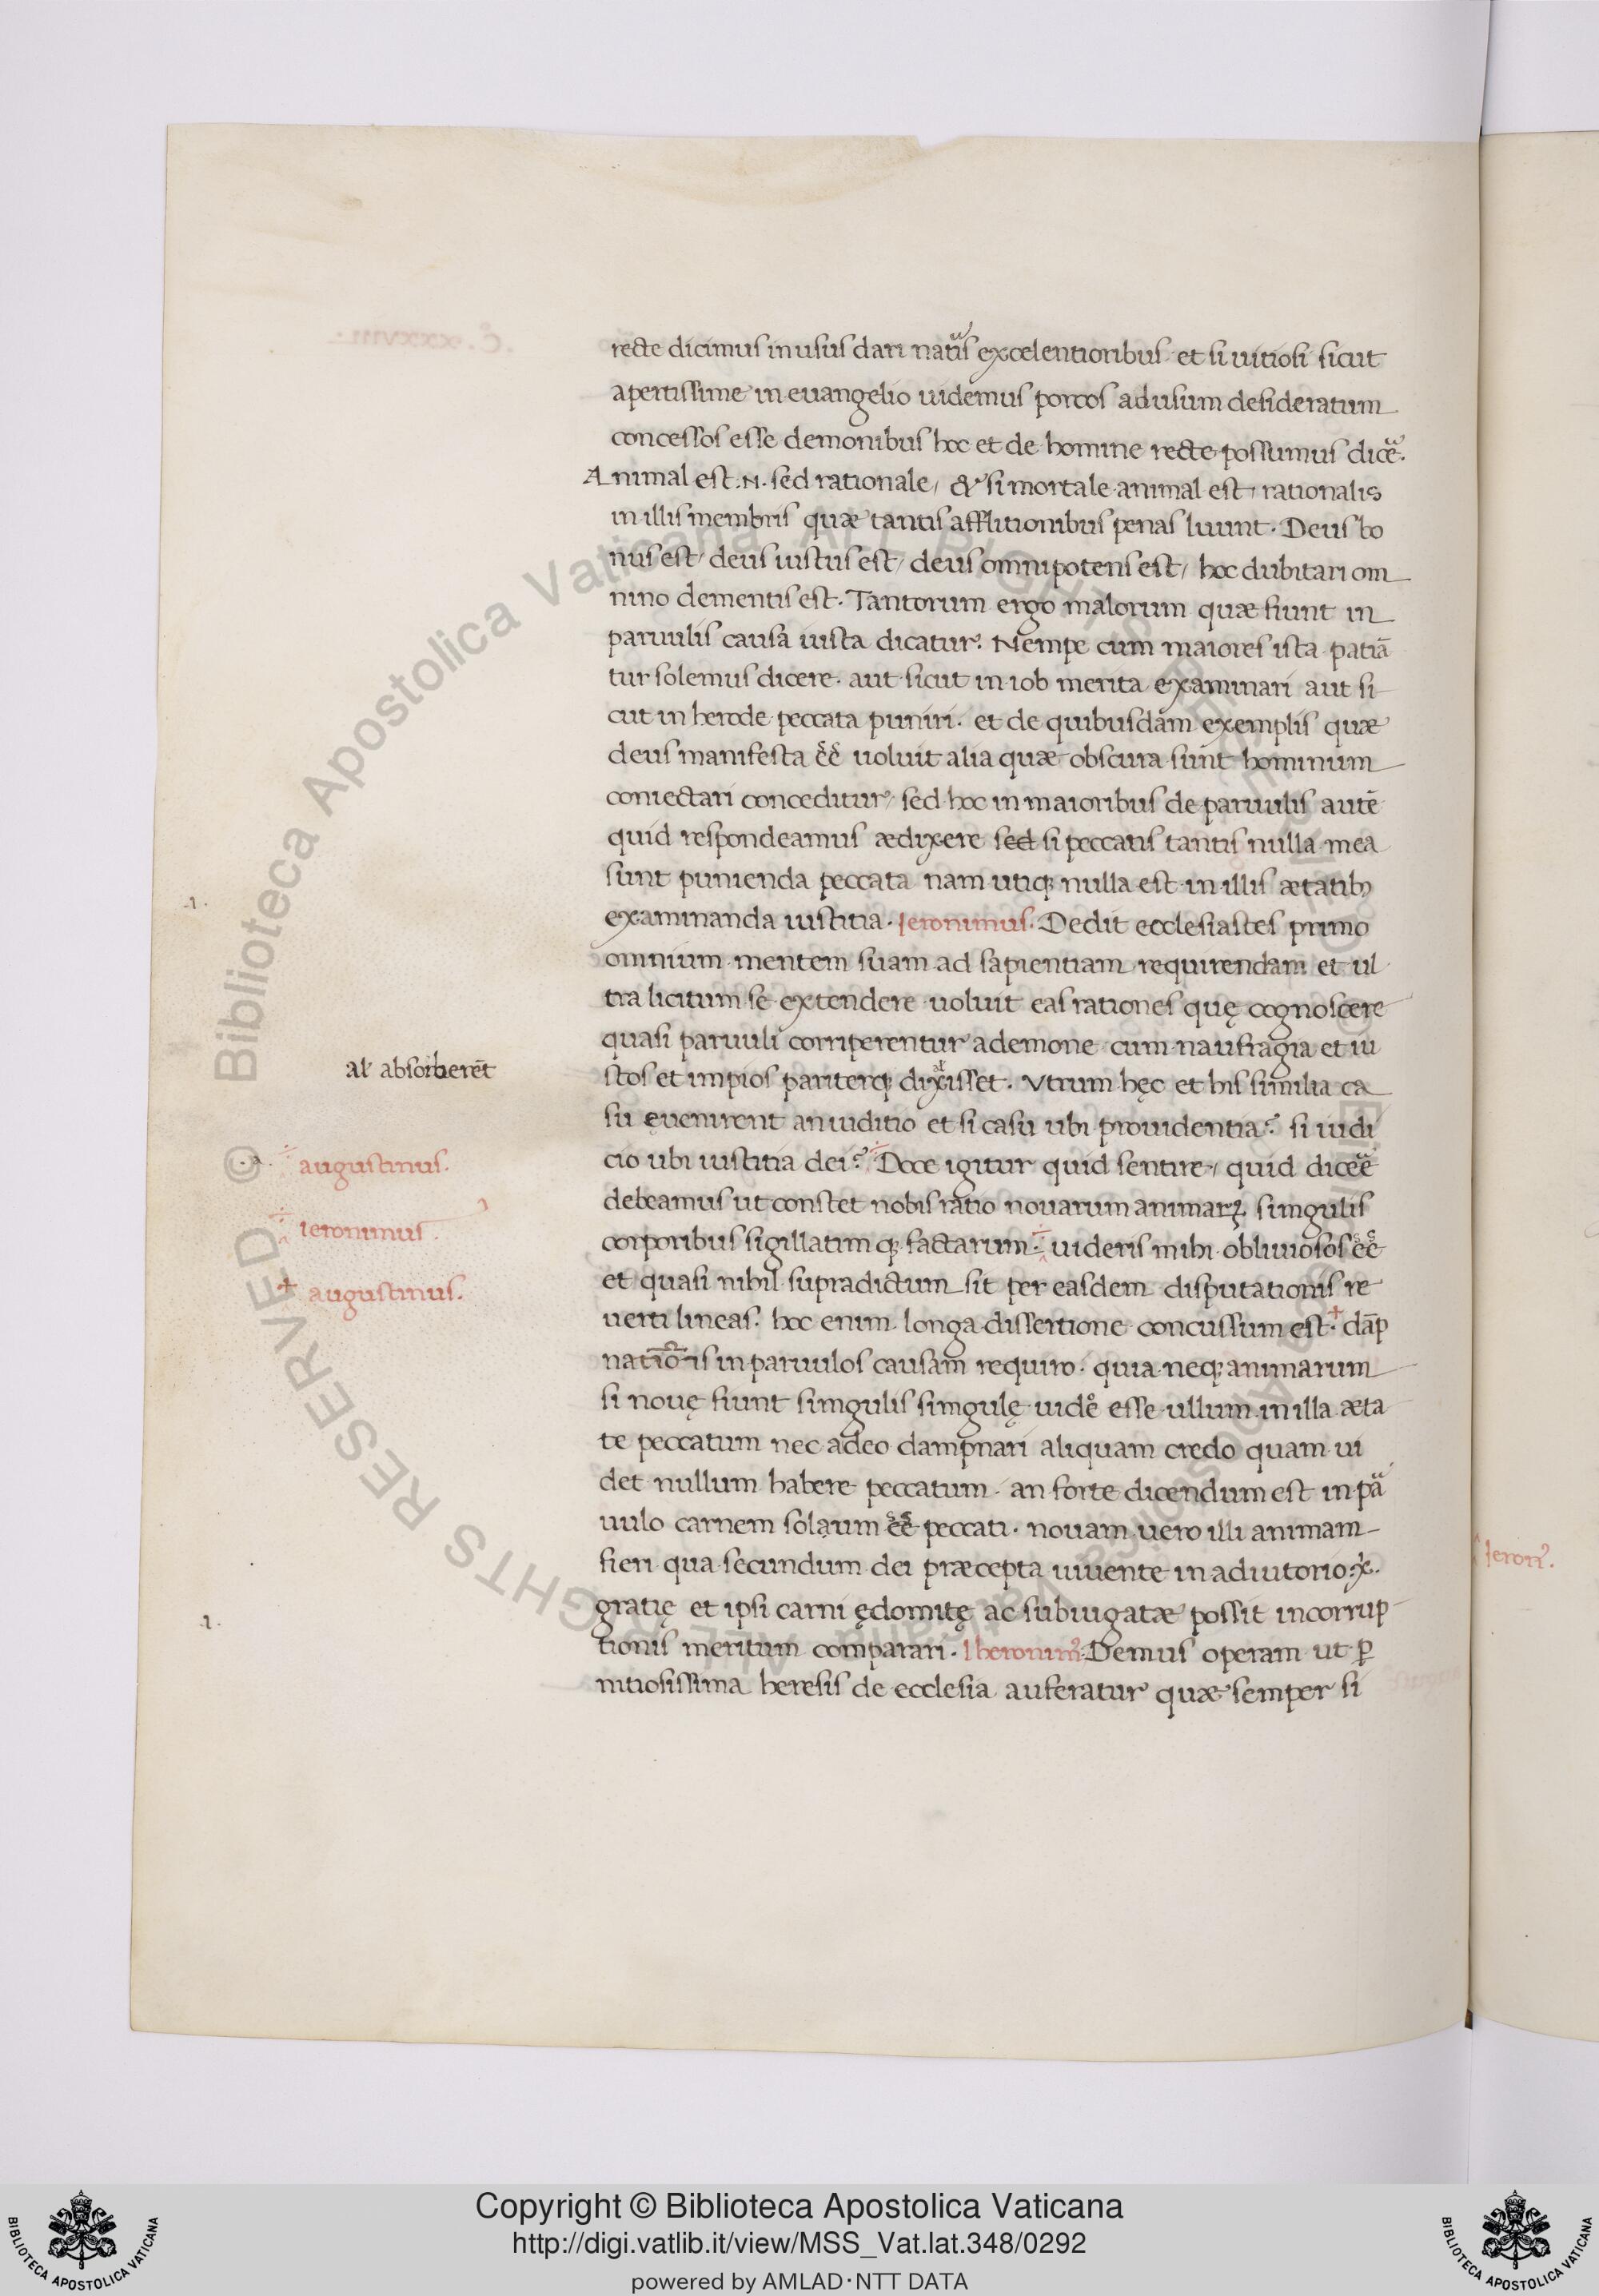 recte dicimus in usus dari nat̃is excelentioribus et si uitiosi sicut
apertissime in euangelio uidemus porcos ad usum desideratum
concessos esse demonibus hoc et de homine recte possumus dicẽ.
Animal est .N. sed rationale, & si mortale animal est, rationalis
in illis membris quæ tantis afflitionibus penas luunt. Deus bo
nus est, deus iustus est, deus omnipotens est, hoc dubitari om
nino dementis est. Tantorum ergo malorum quæ fiunt in
paruulis causa iusta dicatur. Nempe cum maiores ista patiā
tur solemus dicere. aut sicut in iob merita examinari aut si
cut in herode peccata puniri. et de quibusdam exemplis quæ
deus manifesta ẽẽ uoluit alia quæ obscura sunt hominum
coniectari conceditur, sed hoc in maioribus de paruulis autē
quid respondeamus ædixere sed si peccatis tantis nulla mea
sunt punienda peccata nam utiq; nulla est in illis ætatib;
examinanda iustitia. Ieronimus. Dedit ecclesiastes primo
omnium mentem suam ad sapientiam requirendam et ul
tra licitum se extendere uoluit eas rationes quę cognoscere
quasi paruuli corriperentur a demone cum naufragia et iu
al' absorberēt
stos et impios pariterq; dixisset. Vtrum hęc et his similia ca
su ęuenirent an iuditio et si casu ubi prouidentia? si iudi
cio ubi iustitia dei? Doce igitur quid sentire, quid dicẽẽ
.a. augustinus.
debeamus ut constet nobis ratio nouarum animarꝝ singulis
corporibus sigillatim q; factarum. uideris mihi obliuiosos ẽẽ
ieronimus.
et quasi nihil supradictum sit per easdem disputationis re
+ augustinus.
uerti lineas. hoc enim longa dissertione concussum est.+ dāp
natiōis in paruulos causam requiro. quia neq; animarum
si nouę fiunt singulis singulę uidẽ esse ullum in illa æta
te peccatum nec adeo dampnari aliquam credo quam ui
det nullum habere peccatum. an forte dicendum est in pã
uulo carnem solaum ẽẽ peccati. nouam uero illi animam
fieri qua secundum dei præcepta uiuente in adiutorio .x.
gratię et ipsi carni ędomitę ac subiugatæ possit incorrup
.1.
tionis meritum comparari. Iheronim9. Demus operam ut ꝑ
nitiosissima heresis de ecclesia auferatur quæ semper si
Ieron9.
Copyright © Biblioteca Apostolica Vaticana
http://digi.vatlib.it/view/MSS_Vat.lat.348/0292
powered by AMLAD·NTT DATA